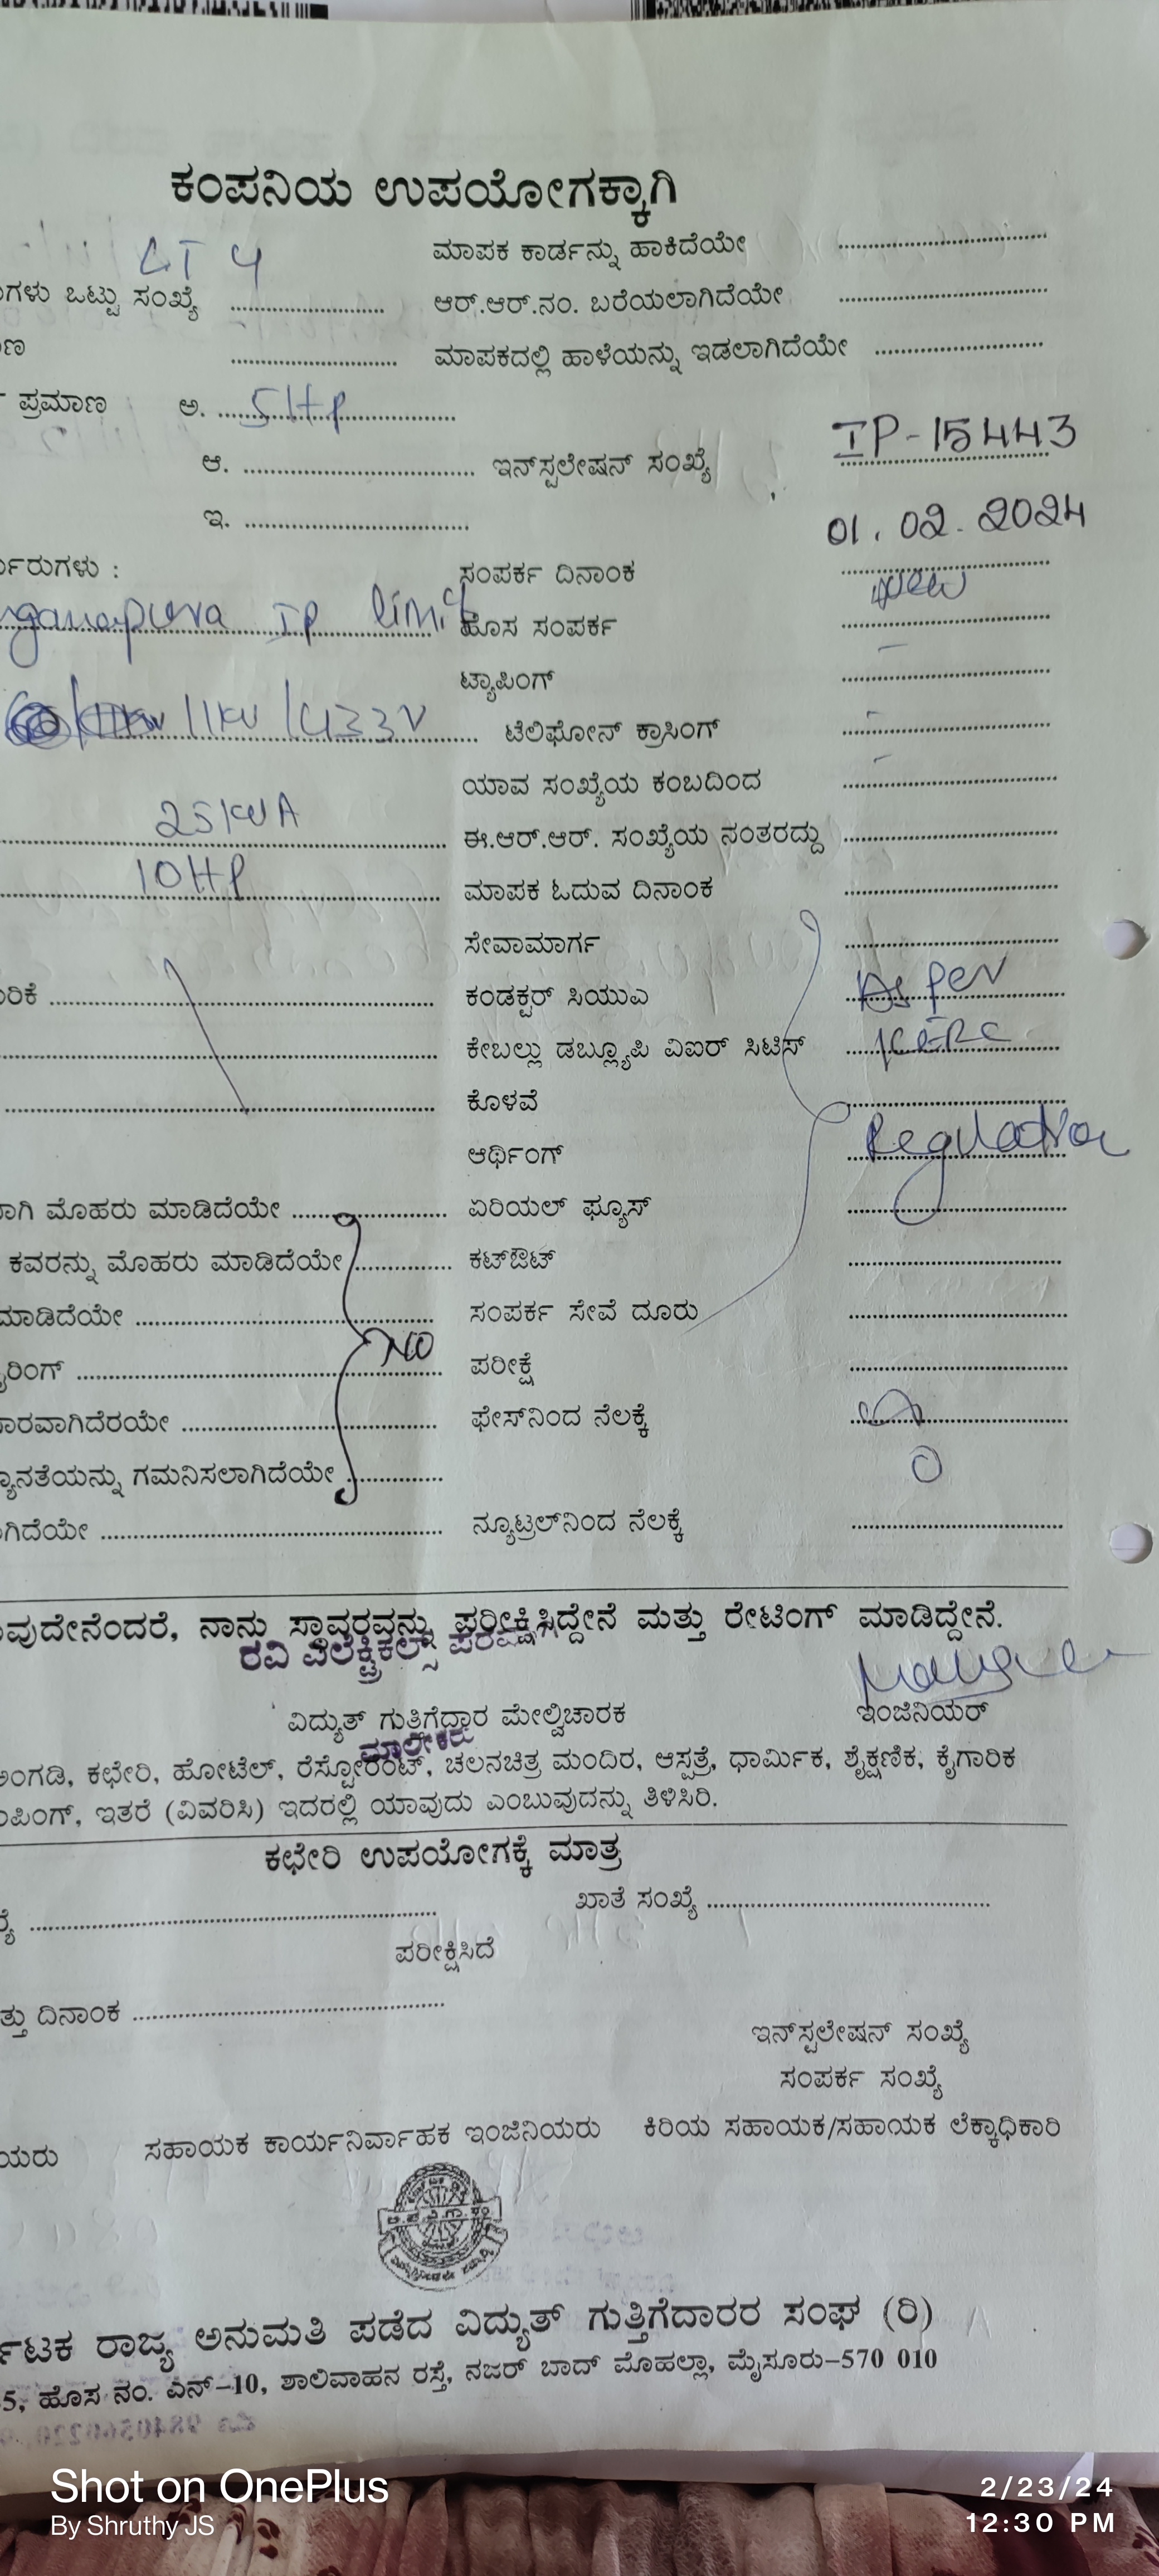 ಕಂಪನಿಯ ಉಪಯೋಗಕ್ಕಾಗಿ
LT 4 ಮಾಪಕ ಕಾರ್ಡನ್ನು ಹಾಕಿದೆಯೇ
ಗಳು ಒಟ್ಟು ಸಂಖ್ಯೆ ಆರ್.ಆರ್.ನಂ. ಬರೆಯಲಾಗಿದೆಯೇ
ಣ ಮಾಪಕದಲ್ಲಿ ಹಾಳೆಯನ್ನು ಇಡಲಾಗಿದೆಯೇ
ಪ್ರಮಾಣ ಅ. 5HP
ಆ. ಇನ್‌ಸ್ಟಲೇಷನ್ ಸಂಖ್ಯೆ IP-15443
ಇ. 01.02.2024
ರುಗಳು : ಸಂಪರ್ಕ ದಿನಾಂಕ
IP limit ಹೊಸ ಸಂಪರ್ಕ New
ಟ್ಯಾಪಿಂಗ್ -
11KV/433V ಟೆಲಿಫೋನ್ ಕ್ರಾಸಿಂಗ್ -
ಯಾವ ಸಂಖ್ಯೆಯ ಕಂಬದಿಂದ -
25KVA ಈ.ಆರ್.ಆರ್. ಸಂಖ್ಯೆಯ ನಂತರದ್ದು
10HP ಮಾಪಕ ಓದುವ ದಿನಾಂಕ
ಸೇವಾಮಾರ್ಗ
ರಿಕೆ ಕಂಡಕ್ಟರ್ ಸಿಯುಎ As per
ಕೇಬಲ್ಲು ಡಬ್ಲ್ಯೂಪಿ ವಿಐರ್ ಸಿಟಿಸ್ KERC
ಕೊಳವೆ
ಆರ್ಥಿಂಗ್ Regulation
ಾಗಿ ಮೊಹರು ಮಾಡಿದೆಯೇ ಏರಿಯಲ್ ಫ್ಯೂಸ್
ಕವರನ್ನು ಮೊಹರು ಮಾಡಿದೆಯೇ ಕಟ್‌ಔಟ್
ಮಾಡಿದೆಯೇ ಸಂಪರ್ಕ ಸೇವೆ ದೂರು
ರಿಂಗ್ NO ಪರೀಕ್ಷೆ
ಾರವಾಗಿದೆರಯೇ ಫೇಸ್‌ನಿಂದ ನೆಲಕ್ಕೆ
್ಯಾನತೆಯನ್ನು ಗಮನಿಸಲಾಗಿದೆಯೇ 0
ಗಿದೆಯೇ ನ್ಯೂಟ್ರಲ್‌ನಿಂದ ನೆಲಕ್ಕೆ
ವುದೇನೆಂದರೆ, ನಾನು ಸ್ಥಾವರವನ್ನು ಪರೀಕ್ಷಿಸಿದ್ದೇನೆ ಮತ್ತು ರೇಟಿಂಗ್ ಮಾಡಿದ್ದೇನೆ.
ರವಿ ಎಲೆಕ್ಟ್ರಿಕಲ್ಸ್
ವಿದ್ಯುತ್ ಗುತ್ತಿಗೆದ್ದಾರ ಮೇಲ್ವಿಚಾರಕ ಇಂಜಿನಿಯರ್
ಮಾಲೀಕರು
ಅಂಗಡಿ, ಕಛೇರಿ, ಹೋಟೆಲ್, ರೆಸ್ಟೋರೆಂಟ್, ಚಲನಚಿತ್ರ ಮಂದಿರ, ಆಸ್ಪತ್ರೆ, ಧಾರ್ಮಿಕ, ಶೈಕ್ಷಣಿಕ, ಕೈಗಾರಿಕ
ಪಿಂಗ್, ಇತರೆ (ವಿವರಿಸಿ) ಇದರಲ್ಲಿ ಯಾವುದು ಎಂಬುವುದನ್ನು ತಿಳಿಸಿರಿ.
ಕಛೇರಿ ಉಪಯೋಗಕ್ಕೆ ಮಾತ್ರ
ಖಾತೆ ಸಂಖ್ಯೆ
ಪರೀಕ್ಷಿಸಿದೆ
ತ್ತು ದಿನಾಂಕ
ಇನ್‌ಸ್ಟಲೇಷನ್ ಸಂಖ್ಯೆ
ಸಂಪರ್ಕ ಸಂಖ್ಯೆ
ಯರು ಸಹಾಯಕ ಕಾರ್ಯನಿರ್ವಾಹಕ ಇಂಜಿನಿಯರು ಕಿರಿಯ ಸಹಾಯಕ/ಸಹಾಯಕ ಲೆಕ್ಕಾಧಿಕಾರಿ
ರ್ನಾಟಕ ರಾಜ್ಯ ಅನುಮತಿ ಪಡೆದ ವಿದ್ಯುತ್ ಗುತ್ತಿಗೆದಾರರ ಸಂಘ (ರಿ)
5, ಹೊಸ ನಂ. ಎನ್-10, ಶಾಲಿವಾಹನ ರಸ್ತೆ, ನಜರ್ ಬಾದ್ ಮೊಹಲ್ಲಾ, ಮೈಸೂರು-570 010
Shot on OnePlus
By Shruthy JS
2/23/24
12:30 PM